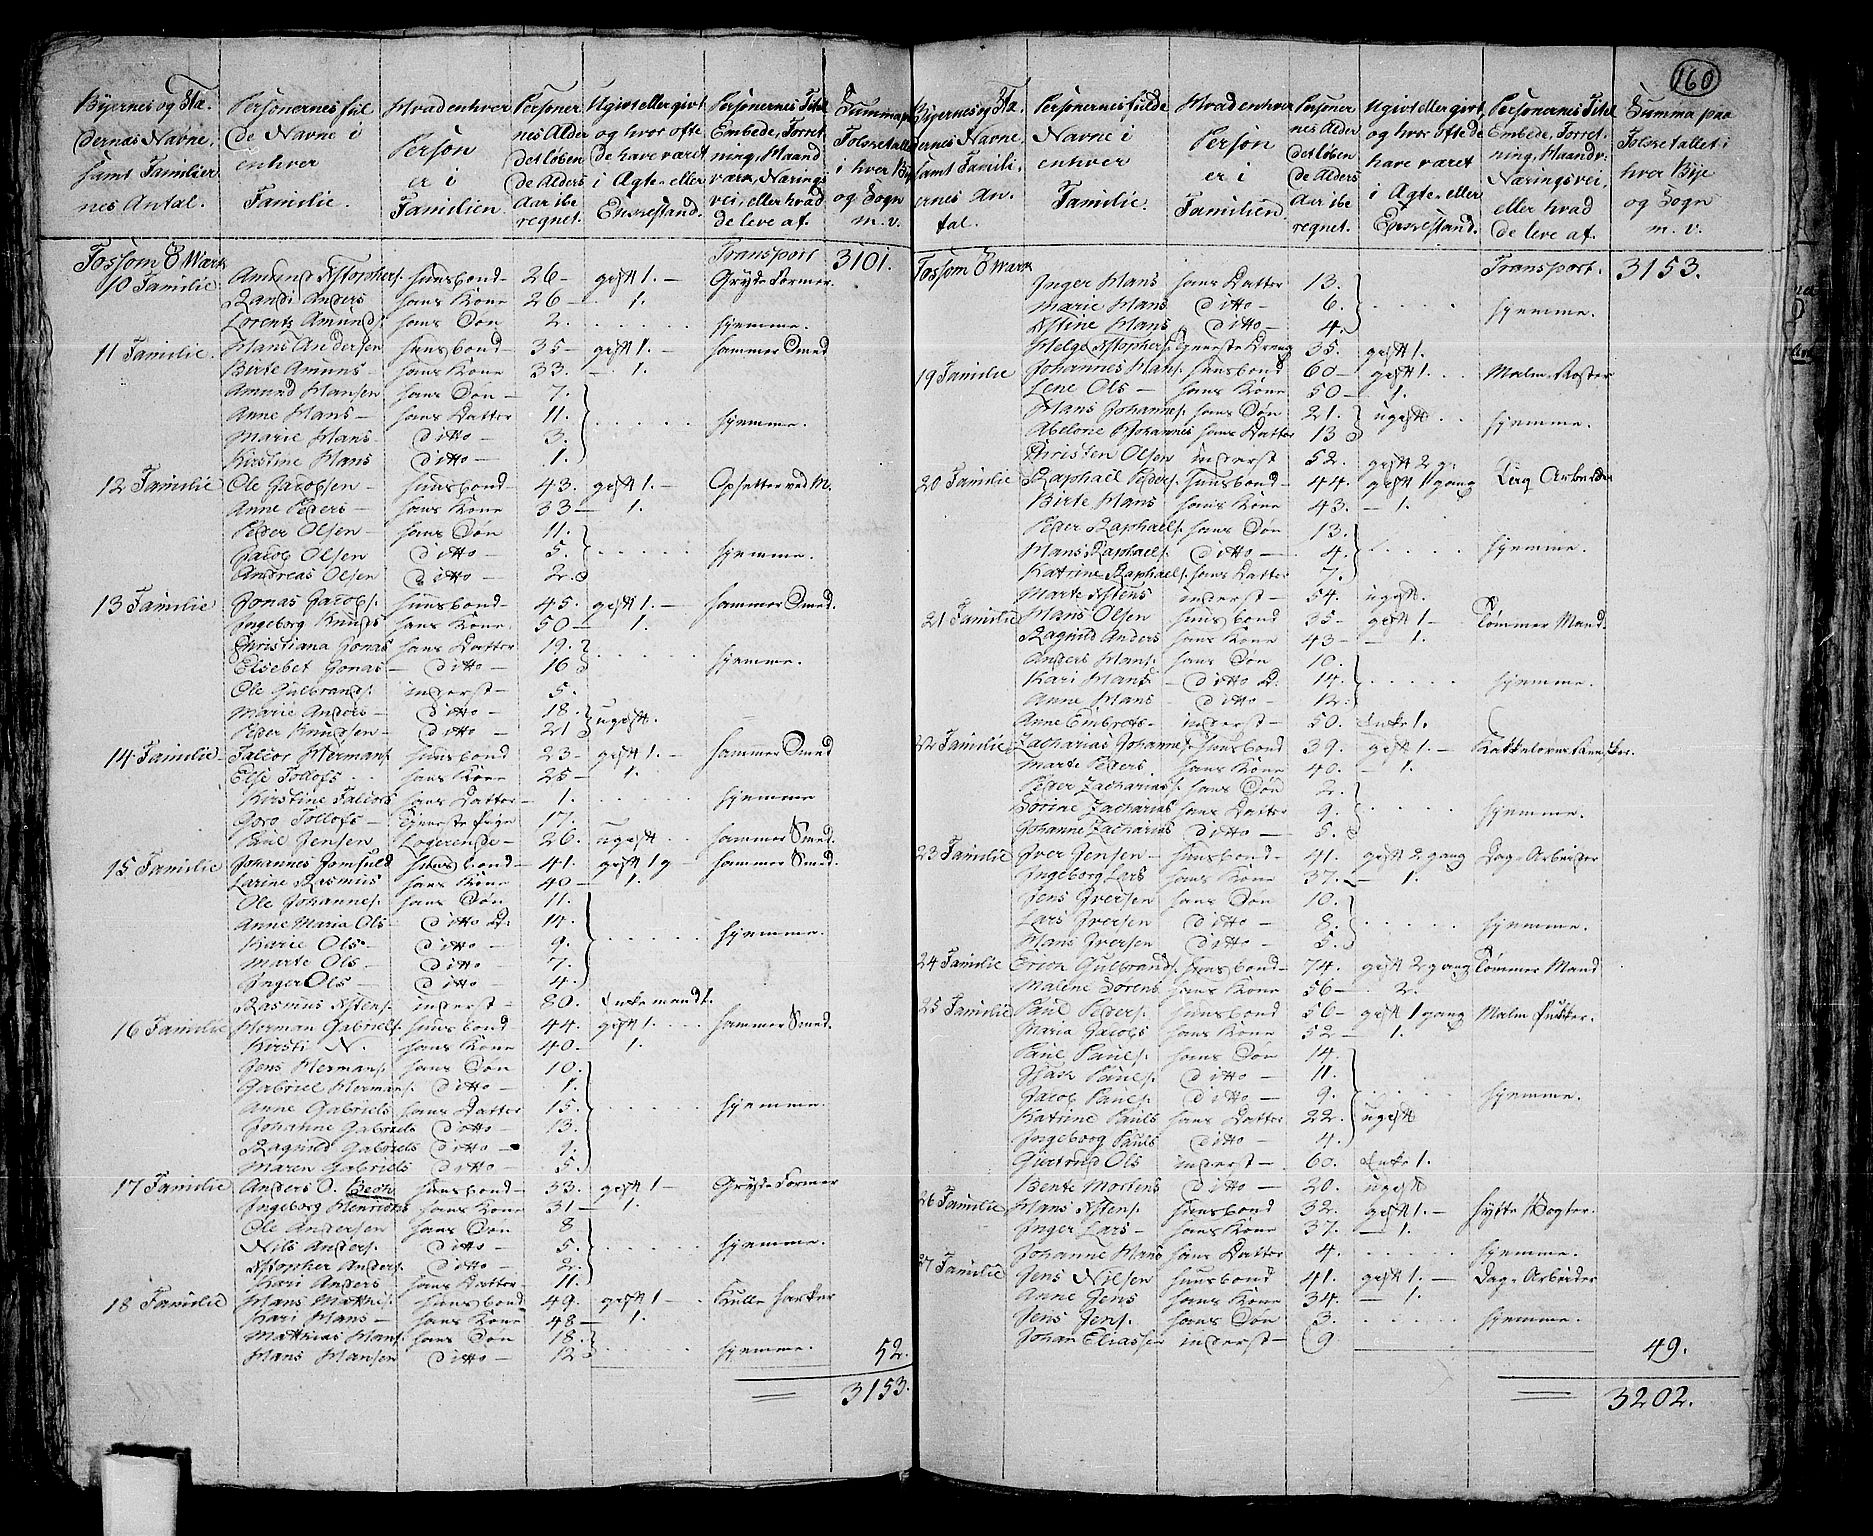 160
Byernes og Stæ- Personernes ful- Hvad enhver Personer- Ugivt eller givt, Personernes Titel Summa paa
dernes Navne, de Navne i Person nes Alder og hvor ofte Embede, Forret- Folketallet
samt Familier- enhver er i det løben- de have været ning, Haand- i hver By
nes Antal. Familie. Familien de Alders i Ægte- eller værk, Nærings- og Sogn
Aar ibe- Enkestand. vei, eller hvad m. v.
regnet. de leve af.
Fossom Værk Transport 3101.
10 Familie Amund Kstophers. huusbond 26 gift 1. Gryde Former
Randi Anders hans Kone 26 1.
Lorentz Amunds. hans Søn 2. hjemme.
11 Familie Hans Andersen huusbond 35 gift 1. hammer Smed
Birte Amuns hans Kone 33. 1.
Amund Hansen hans Søn 7.
Anne Hans hans Datter 11. hjemme.
Marie Hans ditto 3.
Kirstine Hans ditto 1.
12 Familie Ole Jacobsen huusbond 43. gift 1. Opsetter ved M.
Anne Peders hans Kone 33 1.
Peder Olsen hans Søn 11.
Jacob Olsen ditto 5. hjemme.
Andreas Olsen ditto 2.
13 Familie Jonas Jacobs. huusbond 45. gift 1. hammer Smed.
Ingeborg Knuds hans Kone 50 1.
Christiana Jonas hans Datter 19.
Elsebet Jonas ditto 16 hjemme.
Ole Gulbrands. inderst 5.
Marie Anders ditto 18. ugift.
Peder Knudsen ditto 21
14 Familie Falcor Hermans. huusbond 23 gift 1 hammer Smed
Else Tollofs hans Kone 25 1.
Kirstine Falcors hans Datter 1. hjemme
Goro Tollofs tjeneste Pige 17.
Paul Jensen Logerende 26. ugift hammer Smed.
15 Familie Johannes Jomfuld huusbond 41. gift 1 g hammer Smed.
Larine Rasmus hans Kone 40 1.
Ole Johannes. hans Søn 11.
Anne Maria Ols ditto D. 14.
Karie Ols ditto 9. hjemme.
Marte Ols ditto 7.
Inger Ols ditto 4.
Rasmus Kstens. inderst 80. Enkemand 1.
16 Familie Herman Gabriels. huusbond 44. gift 1. hammer Smed.
Kirsti N. hans Kone 40 1.
Jens Hermans. hans Søn 10.
Gabriel Hermans. ditto 1.
Anne Gabriels hans Datter 15. hjemme.
Johanne Gabriels ditto 13.
Ragnild Gabriels ditto 9.
Maren Gabriels ditto 5.
17 Familie Anders O. Bech huusbond 33. gift 1 Gryde Former
Ingeborg Henrichs hans Kone 31 1.
Ole Andersen hans Søn 8
Nils Anders. ditto 5. hjemme.
Kstopher Anders. ditto 2.
Kari Anders hans Datter 11.
18 Familie Hans Mathis. huusbond 49. gift 1 Kulle harker
Kari Hans hans Kone 48 1.
Mathias Hans. hans Søn 18.
Hans Hansen ditto 12 hjemme. 52.
3153.
Byernes og Stæ- Personernes fulde Hvad enhver Personer- Ugivt eller givt, Personernes Titel Summa paa
dernes Navne Navne i Person nes Alder og hvor ofte de Embede, Forret- Folketallet i
samt Famili- enhver er i det løben- have været ning, Haandv: hver Bye
ernes An- Familie. Familien de Alders i Ægte- eller Næringsvei, og Sogn
tal. Aar ibe- Enkestand. eller hvad m. v.
regnet. de leve af.
Fossom Værk Transport. 3153.
Inger Hans hans Datter 13.
Marie Hans ditto 6. hjemme.
Kstine Hans ditto 4.
Helge Kstophers. tjeneste Dreng 35. gift 1.
19 Familie Johannes Hans. huusbond 60 gift 1. Malm Røster
Lene Ols hans Kone 50 1.
Hans Johannes. hans Søn 21. ugift
Abelone Johannes hans Datter 13 hjemme.
Christen Olsen inderst 52. gift 2 g.
20 Familie Raphael Peders. huusbond 44. gift 1 gang Dag Arbeider
Birte Hans hans Kone 43. 1.
Peder Raphaels. hans Søn 13.
Hans Raphaels. ditto 4. hjemme.
Katrine Raphaels. hans Datter 7.
Marte Kstens inderst 54. ugift.
21 Familie Hans Olsen huusbond 35 gift 1 Tømmer Mand.
Ragnild Anders hans Kone 43 1.
Anders Hans. hans Søn 10.
Kari Hans ditto D. 14. hjemme.
Anne Hans ditto 12.
Anne Embrets inderst 50. Enke 1.
22 Familie Zacharias Johannes. huusbond 39. gift 1.
Marte Peders hans Kone 40. 1.
Peder Zacharias. hans Søn 2.
Dorine Zacharias hans Datter 9. hjemme.
Johanne Zacharias ditto 5.
23 Familie Iver Jensen huusbond 41. gift 2 gang Dag Arbeider
Ingeborg Lars hans Kone 37. 1.
Jens Iversen hans Søn 10.
Lars Iversen ditto 8. hjemme.
Hans Iversen ditto 5.
24 Familie Erich Gulbrands. huusbond 74. gift 2 gang Tømmer Mand
Malene Sorens hans Kone 56 2.
25 Familie Paul Peders. huusbond 56 gift 1 gang Malm Pukker.
Maria Jacobs hans Kone 52 1.
Paul Pauls. hans Søn 14.
Isach Pauls. ditto 11.
Jacob Pauls. ditto 9. hjemme.
Katrine Pauls hans Datter 22. ugift
Ingeborg Pauls ditto 4.
Giertrud Ols inderst 60. Enke 1.
Bente Mortens ditto 20. ugift
26 Familie Hans Kstens. huusbond 32. gift 1. hytte Vogter.
Inger Lars hans Kone 37. 1.
Johanne Hans hans Datter 4. hjemme.
27 Familie Jens Nilsen huusbond 41. gift 1. Dag Arbeider
Anne Jens hans Kone 34. 1.
Jens Jens. hans Søn 3. hjemme.
Johan Eliassen inderst 9 49.
3202.